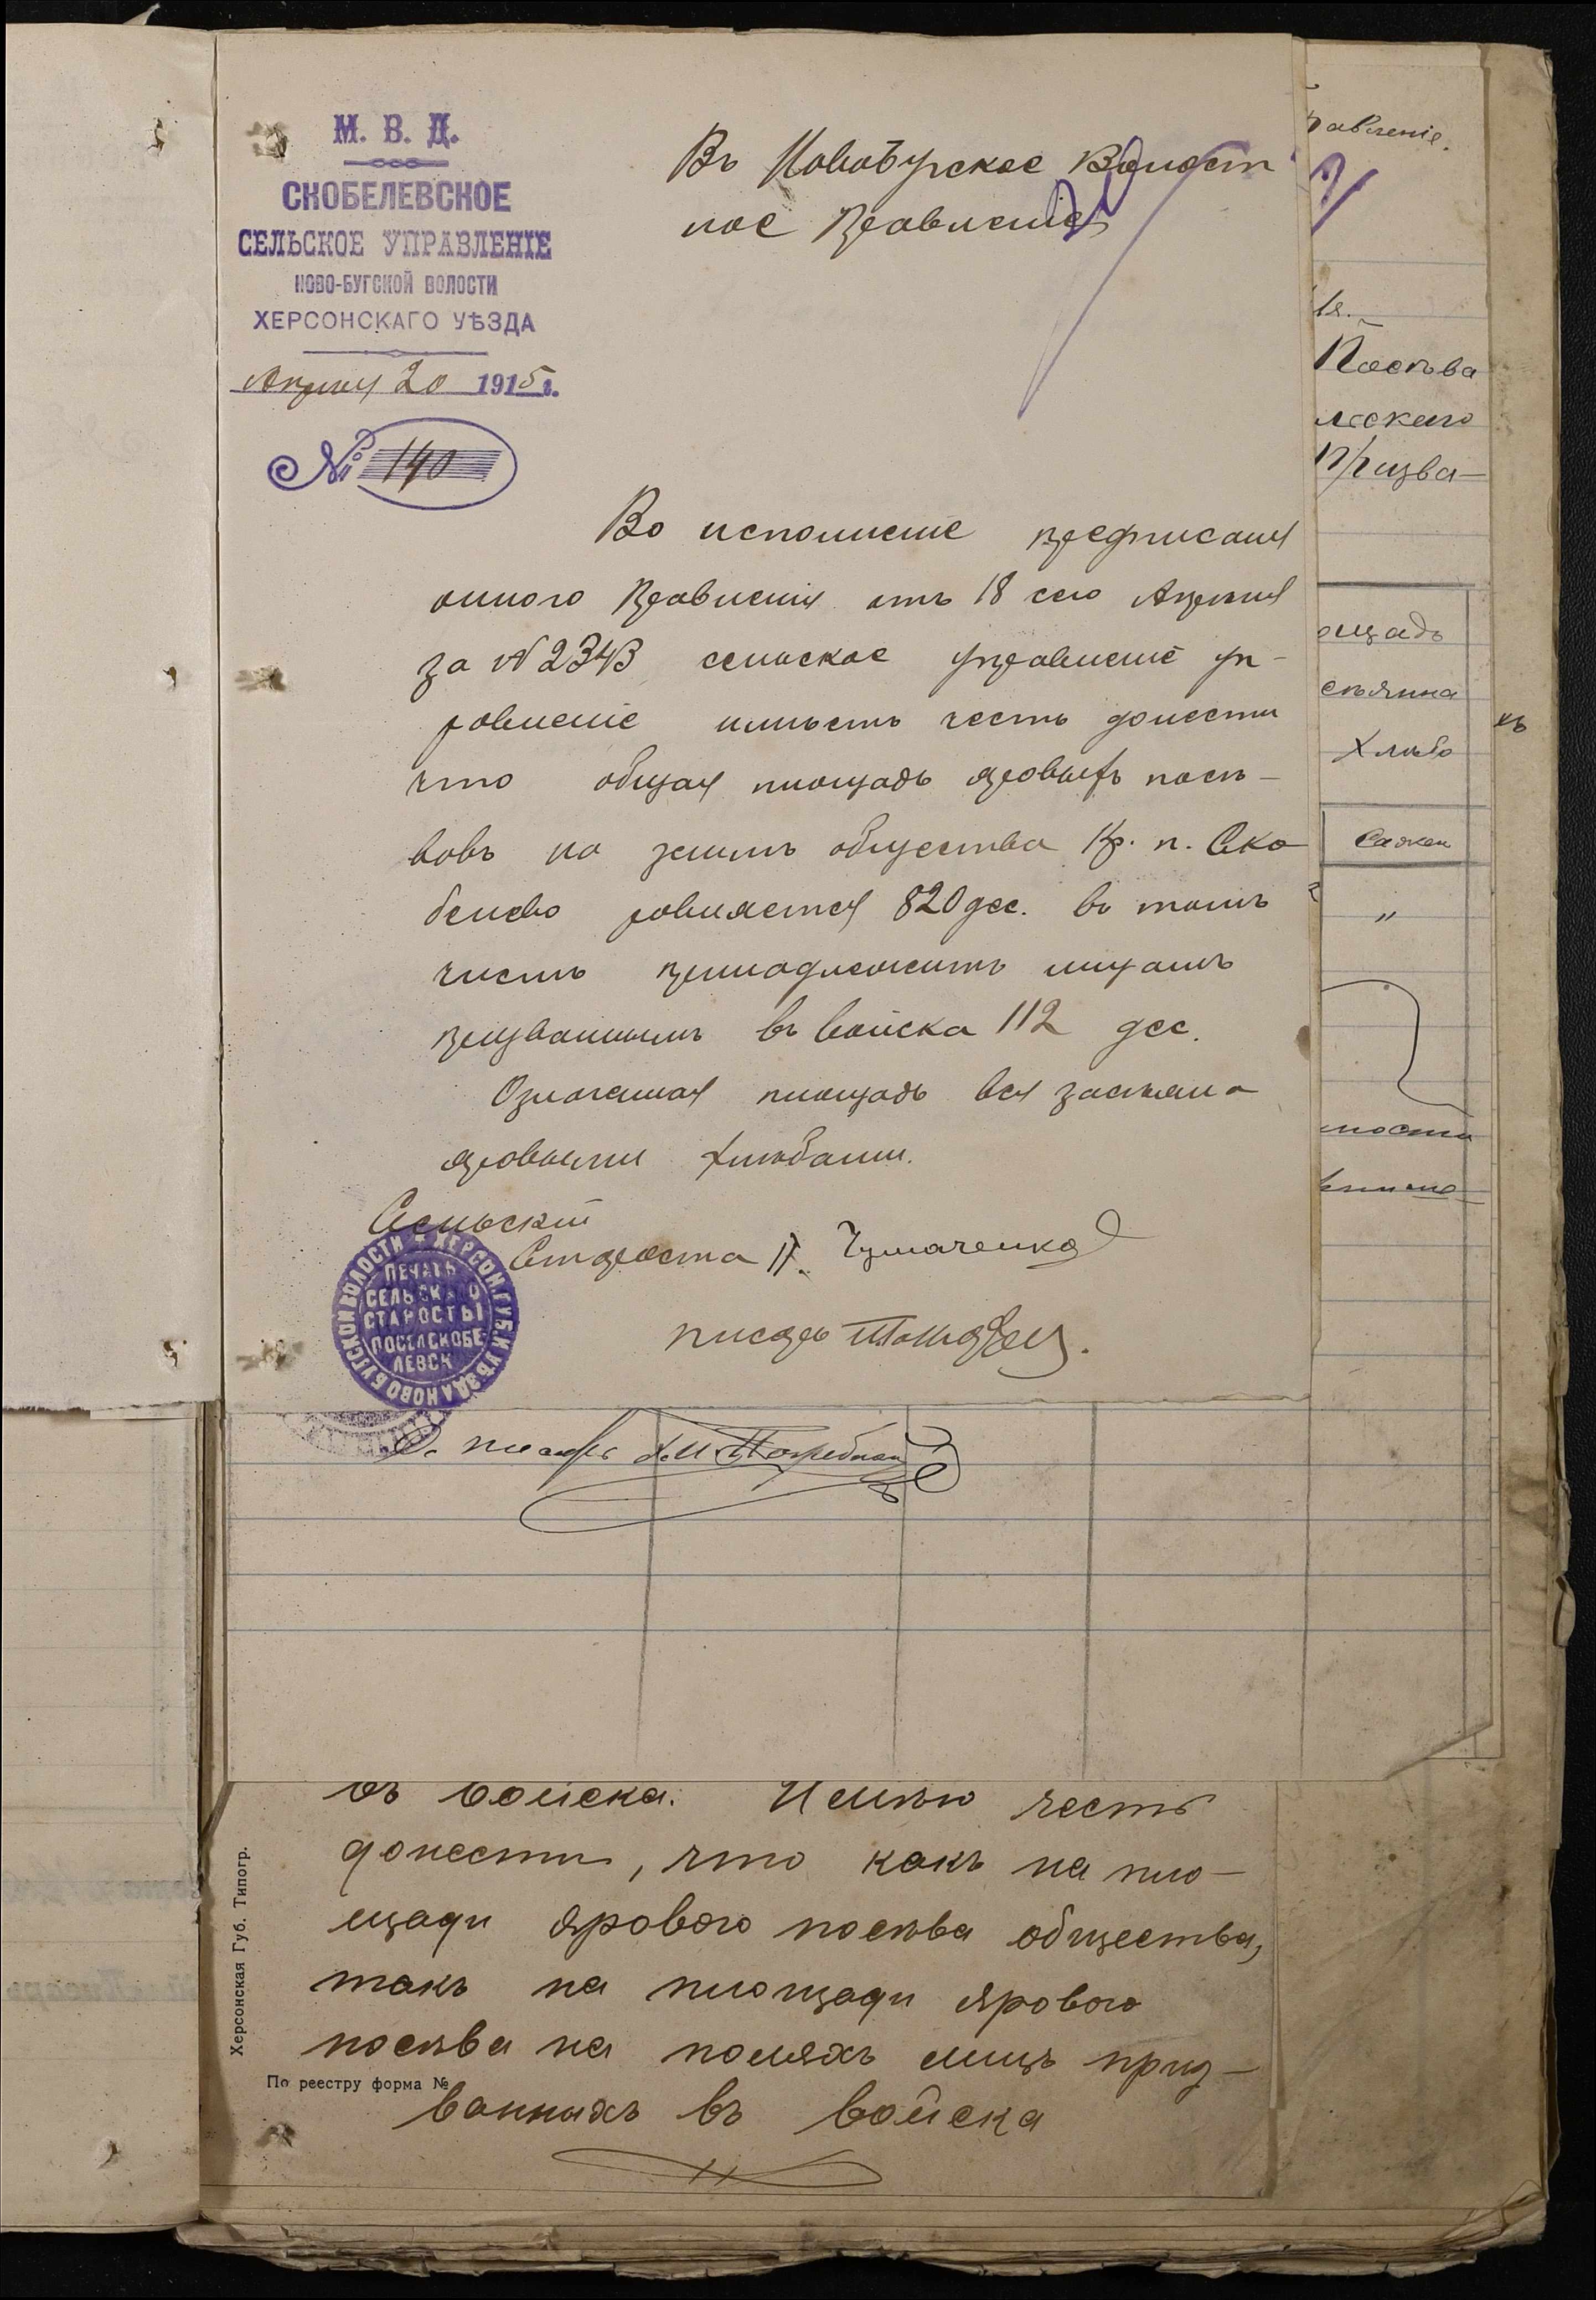 М. В. Д.
СКОБЕЛЕВСКОЕ
СЕЛЬСКОЕ УПРАВЛЕНІЕ
НОВО-БУГСКОЙ ВОЛОСТИ
ХЕРСОНСКАГО УѢЗДА
Апреля 20 1915 г.
№ 140
Въ Новобугское Волост
ное Правленіе
Во исполненіе предписанія
оного Правленія отъ 18 сего Апреля
за № 2343 сельское управленіе уп-
равленіе имѣетъ честь донести
что общая площадь яровыхъ посѣ-
вовъ на землѣ общества Кр. п. Ско
белево ровняется 820 дес. въ томъ
числѣ принадлежитъ лицамъ
призваннымъ въ войска 112 дес.
Означеная площадь вся засѣяна
яровыми хлѣбами.
Сельскій
Староста П. Чумаченко
писарь
ПЕЧАТЬ
СЕЛЬСКАГО
СТАРОСТЫ
ПОСЕЛ СКОБЕ-
ЛЕВСК
НОВОБУГСКОЙ ВОЛОСТИ ХЕРСОН. ГУБ. И УѢЗДА
равленіе.
ія.
Посѣва
лескаго
Призва-
ощадь
сѣянна
Хлѣба
къ
Сажен
"
ности
писарь
въ войска. Имѣю честь
донести, что какъ на пло-
щади ярового посѣва общества,
такъ на площади ярового
посѣва на поляхъ лицъ приз-
ванныхъ въ войска
Херсонская Губ. Типогр.
По реестру форма №